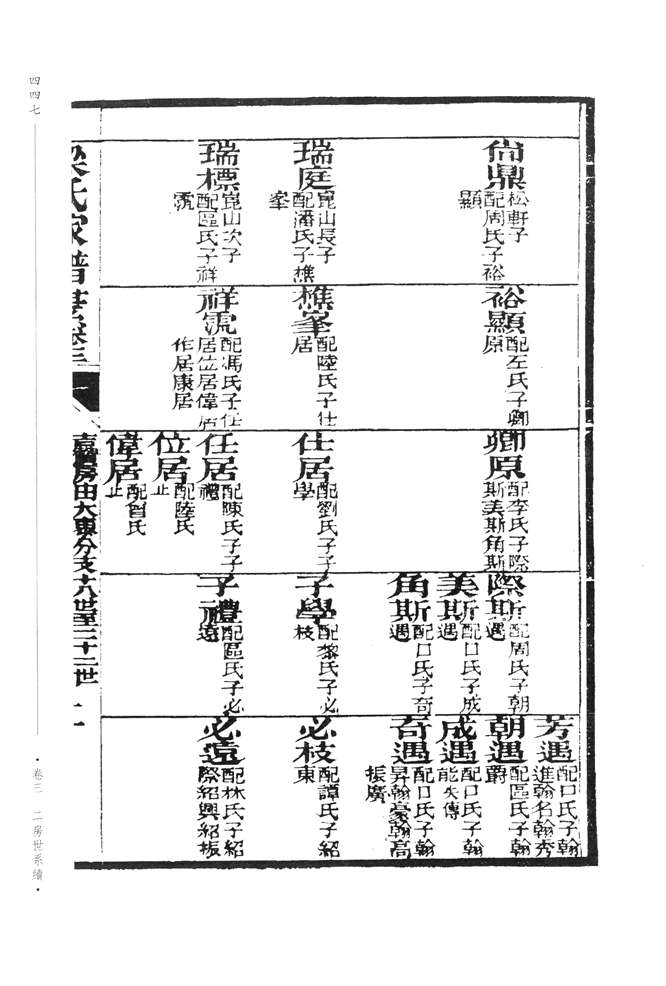 尙鼎 松軒子
配周氏子裕
顯
瑞庭 崑山長子
配潘氏子樵
峯
瑞標 崑山次子
配區氏子祥
霓
裕顯 配左氏子卿
原
樵峯 配陸氏子仕
居
祥霓 配馮氏子任
居位居偉居
作居康居
卿原 配李氏子際
斯美斯角斯
仕居 配劉氏子子
學
任居 配陳氏子子
禮
位居 配陸氏
止
偉居 配曾氏
止
際斯 配周氏子朝
遇
美斯 配口氏子成
遇
角斯 配口氏子奇
遇
子學 配黎氏子必
枝
子禮 配區氏子必
遠
芳遇 配口氏子翰
進翰名翰秀
朝遇 配區氏子翰
爵
成遇 配口氏子翰
能失傳
奇遇 配口氏子翰
昇翰豪翰高
振廣
必枝 配譚氏子紹
東
必遠 配林氏子紹
際紹興紹振
梁氏家譜 卷三
房由大東分支十八世至二十二世
四四七
·卷三 二房世系續·